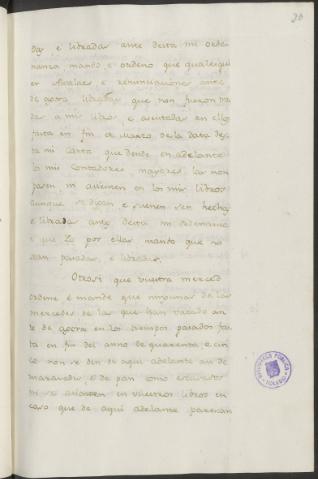 20
das, e libradas ante desta mi orde
nanza mando, e ordeno que qualesqui
er Alvalaes e renunciaciones ante
de agora libradas que non fueron da
das a mis libros, e asentadas en ellos
fasta en fin de Marzo de la data des
ta mi carta que dende en adelante
los mis Contadores mayores las non
pasen ni asienten en los mis libros
aunque se digan e suenen ser fechas
e libradas antes desta mi ordenanza
e que Yo por ellas mando que no
sean pasadas, e libradas.
Otrosi que vuestra merced
ordene, e mande que ningunas de las
mercedes de las que han vacado an
te de agora en los tiempos pasados fas
ta en fin del anno de quarenta, e cin
co non se den de aqui adelante asi de
maravedis, e de pan como escusados
ni se asienten en vuestros libros en
caso que de aqui adelante parezcan
BIBLIOTECA PUBLICA
TOLEDO